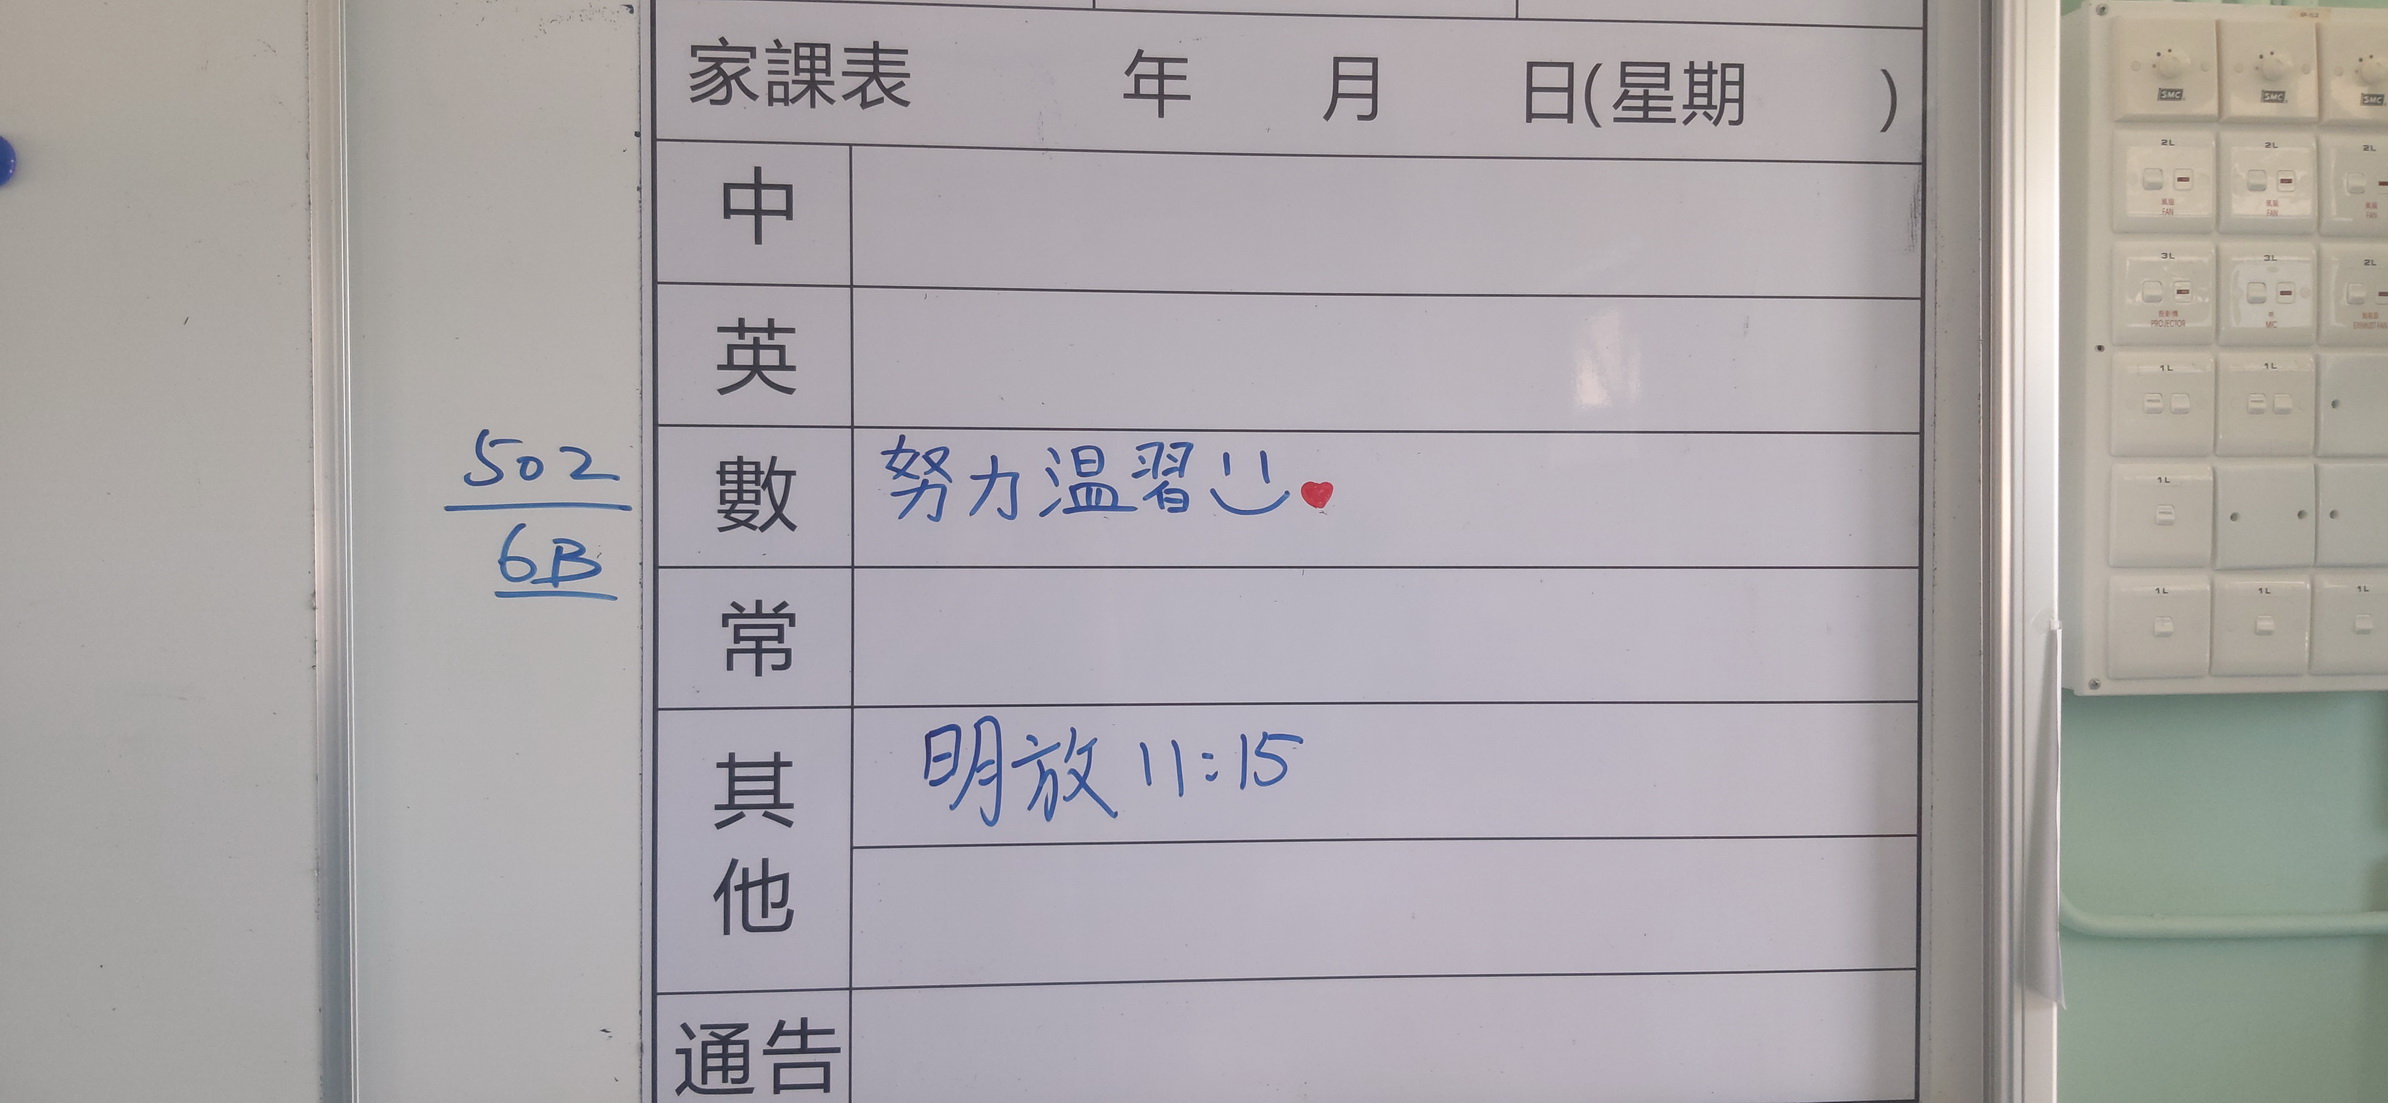 家課表 年 月 日(星期 )
中
英
502
6B
數 努力温習
常
其他 明放 11:15
通告
SMC SMC SMC
2L 2L 2L
風扇 風扇
FAN FAN FAN
3L 3L 2L
PROJECTOR MIC
1L 1L
1L
1L 1L 1L